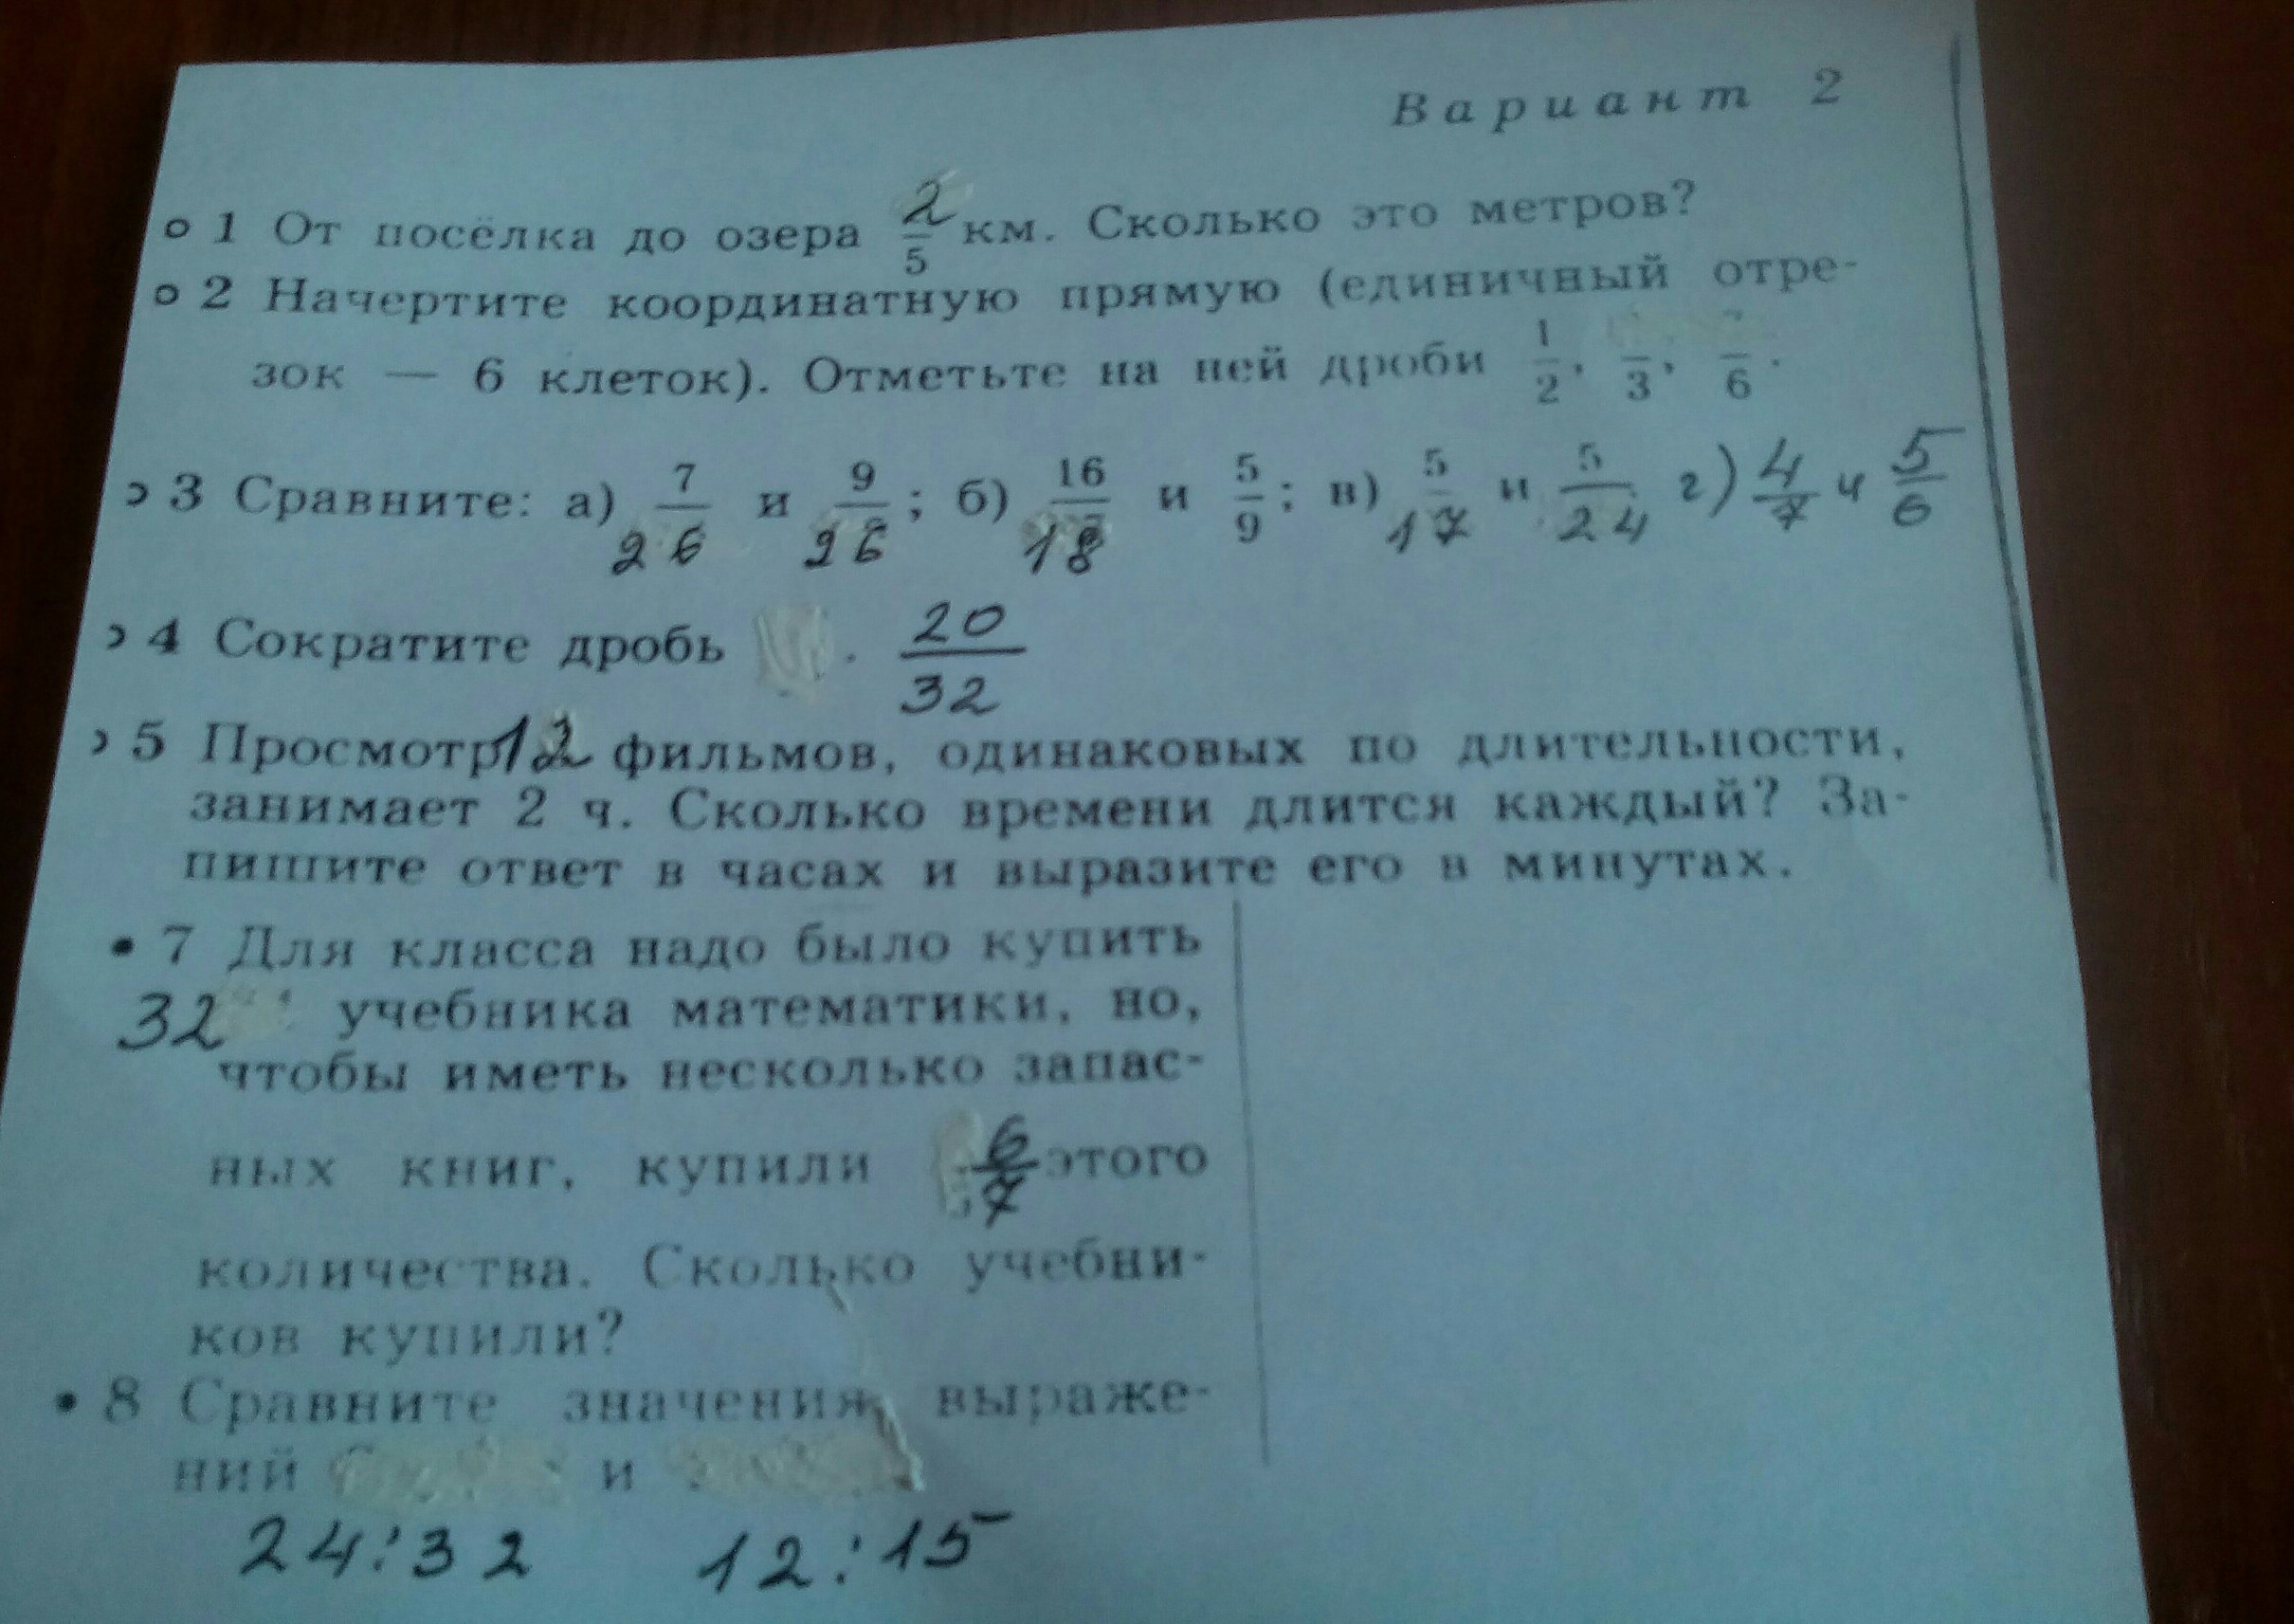 Вариант 2
1 От посёлка до озера 2/5 км. Сколько это метров?
2 Начертите координатную прямую (единичный отре-
зок — 6 клеток). Отметьте на ней дроби 1/2, /3, /6.
3 Сравните: а) 7/26 и 9/26; б) 16/18 и 5/9; в) 5/17 и 5/24 г) 4/7 и 5/6
4 Сократите дробь . 20/32
5 Просмотр 12 фильмов, одинаковых по длительности,
занимает 2 ч. Сколько времени длится каждый? За-
пишите ответ в часах и выразите его в минутах.
• 7 Для класса надо было купить
32 учебника математики, но,
чтобы иметь несколько запас-
ных книг, купили 6/7 этого
количества. Сколько учебни-
ков купили?
• 8 Сравните значения выраже-
ний и
24:32 12:15